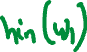 hin (Wh)